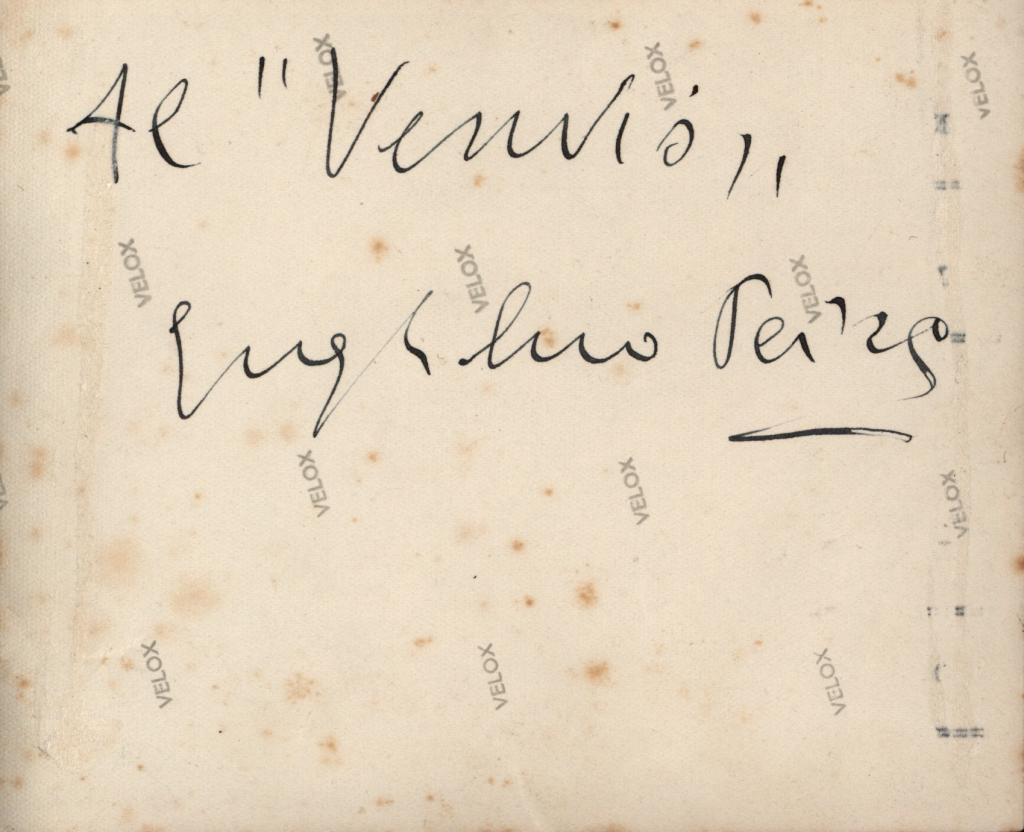 Al "Vesuvio„
VELOX VELOX VELOX
VELOX VELOX VELOX
Guglielmo Peirce
VELOX VELOX VELOX
VELOX VELOX VELOX